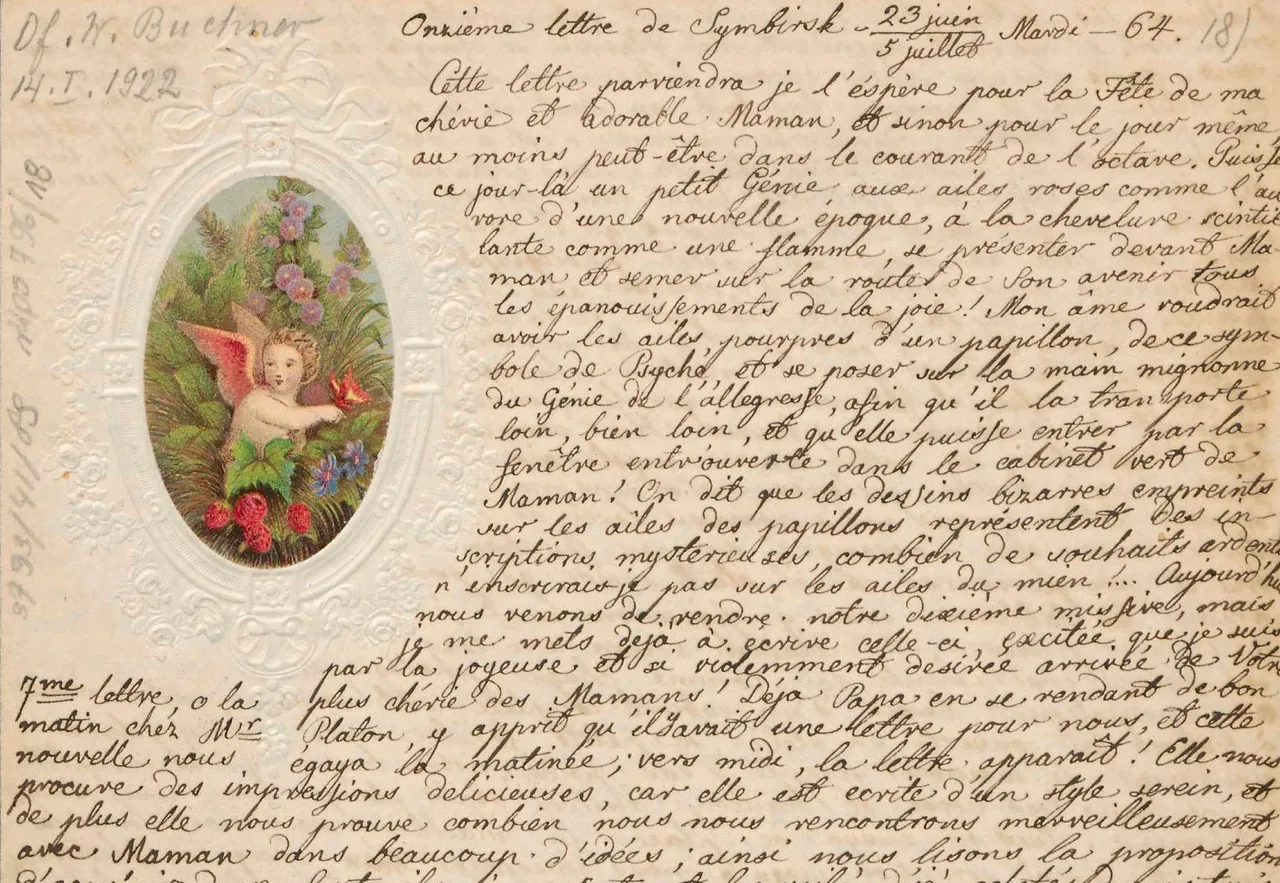 Df. W. Buchner
14.I.1922
Onzième lettre de Symbirsk - 23 juin / 5 juillet Mardi - 64. 18)
Cette lettre parviendra je l'éspère pour la Fête de ma
chérie et adorable Maman, et sinon pour le jour même
au moins peut-être dans le courant de l'octave. Puisse
ce jour-là un petit Génie aux ailes roses comme l'au
rore d'une nouvelle époque, à la chevelure scintil
lante comme une flamme, se présenter devant Ma-
man et semer sur la route de Son avenir tous
les épanouissements de la joie! Mon âme voudrait
avoir les ailes pourpres d'un papillon, de ce sym-
bole de Psyché, et se poser sur la main mignonne
du Génie de l'allegresse, afin qu'il la transporte
loin, bien loin, et qu'elle puisse entrer par la
fenêtre entr'ouverte dans le cabinet vert de
Maman! On dit que les dessins bizarres empreints
sur les ailes des papillons représentent des in-
scriptions mystérieuses, combien de souhaits ardents
n'enscrirais-je pas sur les ailes du mien!... Aujourd'hu
nous venons de rendre notre dixième missive, mais
je me mets dejà à ecrire celle-ci, excitée que je suis
par la joyeuse et si violemment desirée arrivée de Votre
7me lettre, o la plus chérie des Mamans! Déja Papa en se rendant de bon
matin chez Mr Platon, y apprit qu'il y avait une lettre pour nous, et cette
nouvelle nous égaya la matinée; vers midi, la lettre apparaît! Elle nous
procure des impressions delicieuses, car elle est ecrite d'un style serein, et
de plus elle nous prouve combien nous nous rencontrons merveilleusement
avec Maman dans beaucoup d'idées; ainsi nous lisons la proposition